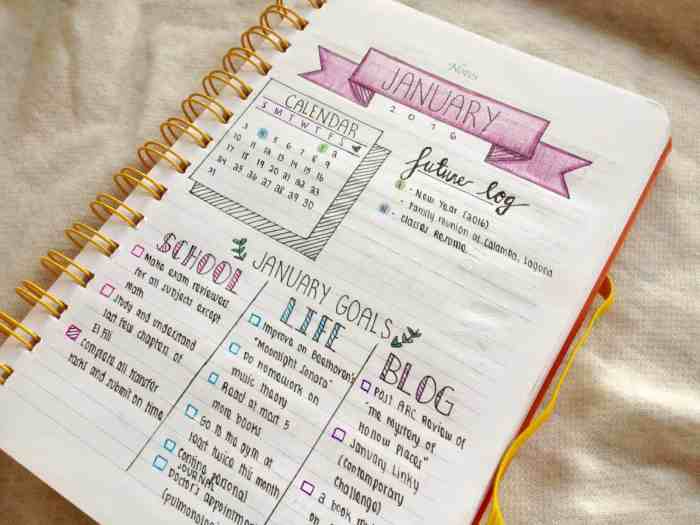 Notes
JANUARY
2016
CALENDAR
S M T W T F S
3 4 5 6 7 8 9
10 11 12 13 14 15 16
17 18 19 20 21 22 23
24 25 26 27 28 29 30
31
future log
- New Year (2016)
- Family reunion at Calamba, Laguna
- Classes Resume
JANUARY GOALS
SCHOOL
Make exam reviewers
for all subjects except
Math
Study and understand
last few chapters of
El Fili
Complete all transfer
tasks and submit on time
LIFE
Improve on Beethoven's
"Moonlight Sonata"
Do homework on
music theory
Read at most 5
more books
Go to the gym at
least twice this month
Continue personal
journal
Doctor's appointment
(pulmonologist
BLOG
Post ARC Review of
"The Mystery of
Hollow Places"
January Linky
(Contemporary
Challenge)
a book
on